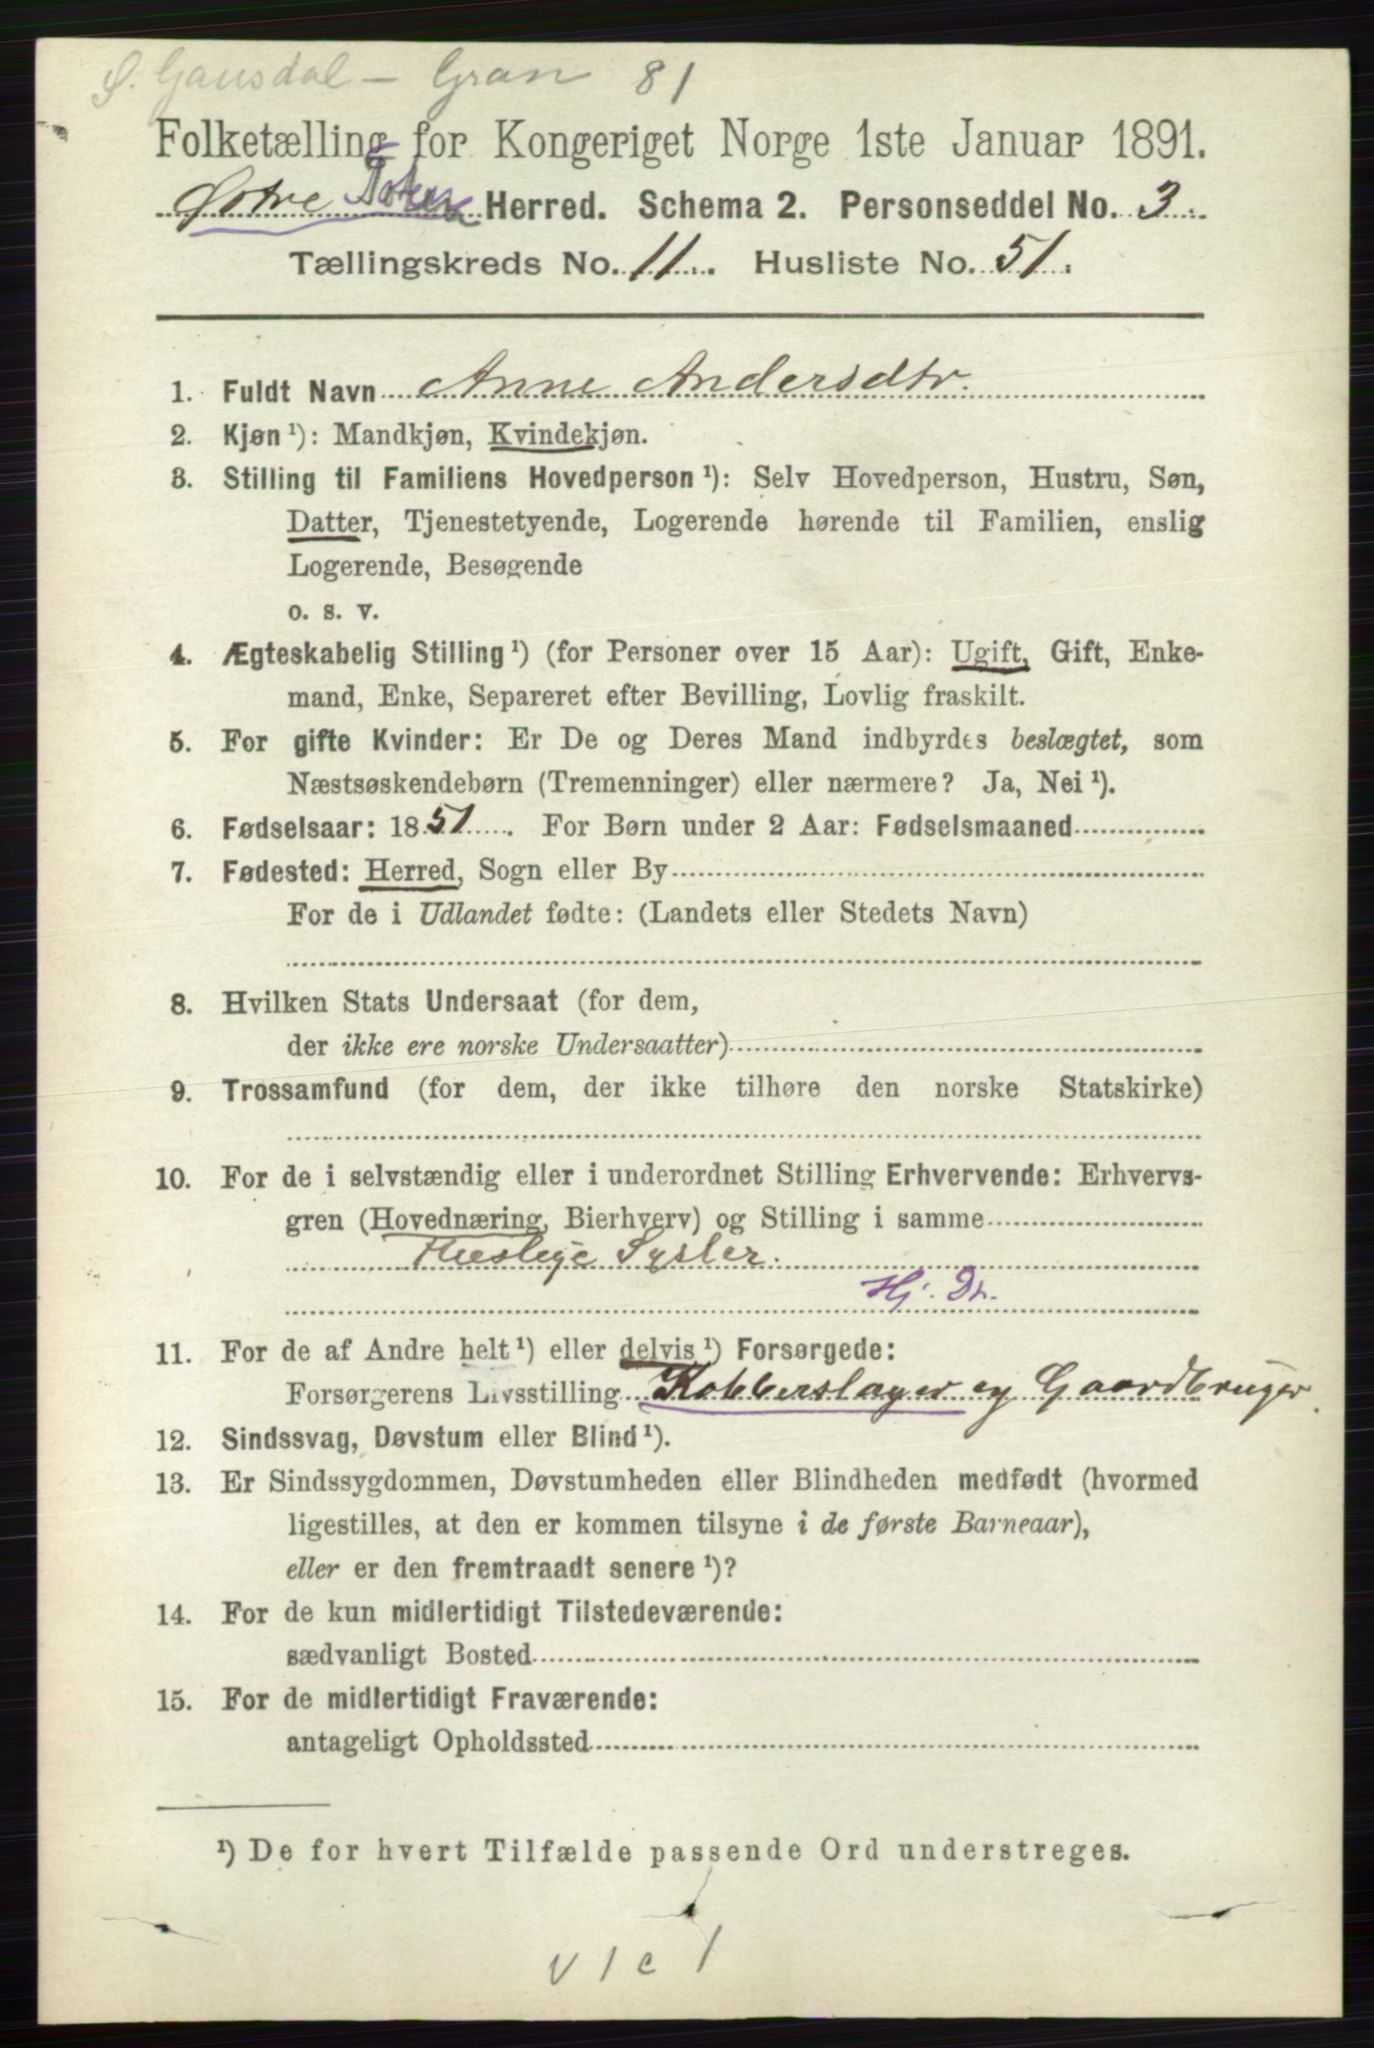 Ø. Gausdal – Gran 81
Folketælling for Kongeriget Norge 1ste Januar 1891.
Østre Toten Herred. Schema 2. Personseddel No. 3.
Tællingskreds No. 11. Husliste No. 51.
1. Fuldt Navn Anne Andersdtr.
2. Kjøn ¹): Mandkjøn, Kvindekjøn.
3. Stilling til Familiens Hovedperson ¹): Selv Hovedperson, Hustru, Søn,
Datter, Tjenestetyende, Logerende hørende til Familien, enslig
Logerende, Besøgende
o. s. v.
4. Ægteskabelig Stilling ¹) (for Personer over 15 Aar): Ugift, Gift, Enke-
mand, Enke, Separeret efter Bevilling, Lovlig fraskilt.
5. For gifte Kvinder: Er De og Deres Mand indbyrdes beslægtet, som
Næstsøskendebørn (Tremenninger) eller nærmere? Ja, Nei ¹).
6. Fødselsaar: 1851. For Børn under 2 Aar: Fødselsmaaned
7. Fødested: Herred, Sogn eller By
For de i Udlandet fødte: (Landets eller Stedets Navn)
8. Hvilken Stats Undersaat (for dem,
der ikke ere norske Undersaatter)
9. Trossamfund (for dem, der ikke tilhøre den norske Statskirke)
10. For de i selvstændig eller i underordnet Stilling Erhvervende: Erhvervs-
gren (Hovednæring, Bierhverv) og Stilling i samme
Huslige Sysler.
Hj. Dt.
11. For de af Andre helt ¹) eller delvis ¹) Forsørgede:
Forsørgerens Livsstilling Kobberslager og Gaardbruger.
12. Sindssvag, Døvstum eller Blind ¹).
13. Er Sindssygdommen, Døvstumheden eller Blindheden medfødt (hvormed
ligestilles, at den er kommen tilsyne i de første Barneaar),
eller er den fremtraadt senere ¹)?
14. For de kun midlertidigt Tilstedeværende:
sædvanligt Bosted
15. For de midlertidigt Fraværende:
antageligt Opholdssted
¹) De for hvert Tilfælde passende Ord understreges.
v 1 c 1